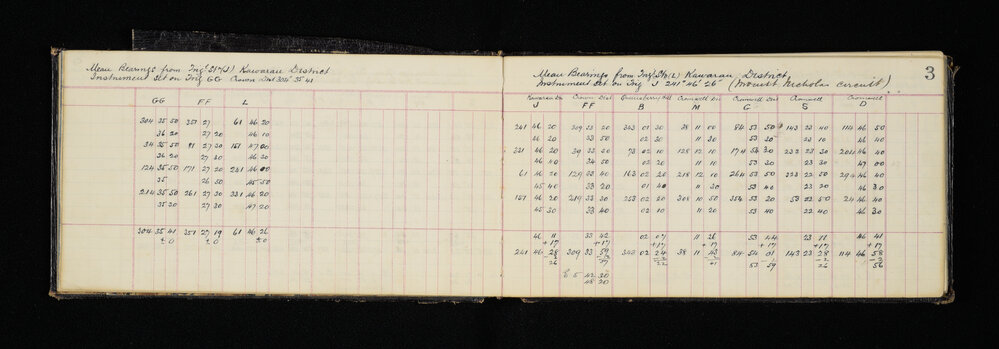 Mean Bearings from Trig Stn (J) Kawarau District
Instrument set on Trig GG Crown Dist 304° 35' 41
GG FF L
304 35 50 357 27 61 46 20
36 20 27 20 46 10
34 35 50 87 27 30 151 47 00
36 20 27 20 46 20
124 35 50 177 27 20 241 46 00
35 26 50 45 50
214 35 50 267 27 30 331 46 20
35 30 27 30 47 20
304 35 41 357 27 19 61 46 26
±0 ±0 ±0
3
Mean Bearings from Trig Stn (L) Kawarau District
Instrument set on Trig J 241° 46' 26" (Mount Nicholas Circuit)
Kawarau Dn Crown Dist Hill Cromwell Dist Cromwell Cromwell
J FF B M G S D
241 46 20 309 33 20 343 01 30 38 11 00 84 53 50 143 23 40 114 46 50
46 20 33 50 02 30 11 30 53 30 23 10 46 40
331 46 20 39 33 20 73 02 10 128 12 10 174 53 30 232 23 30 204 46 40
46 40 34 50 02 20 11 10 53 30 23 30 47 00
61 46 20 129 33 40 163 02 20 218 12 10 264 53 50 323 23 50 294 46 40
45 40 33 20 01 40 11 30 53 40 23 20 46 30
151 46 20 219 33 30 253 02 20 308 10 50 354 53 20 53 02 50 24 46 40
45 30 33 40 02 10 11 20 53 40 22 40 46 30
46 11 33 42 02 07 11 26 53 44 23 11 46 41
+17 +17 +17 +17 +17 +17
241 46 28 309 33 59 343 02 24 38 11 43 84 54 01 143 23 28 114 46 58
26 57 22 41 53 59 26 56
C S 42 30
48 20